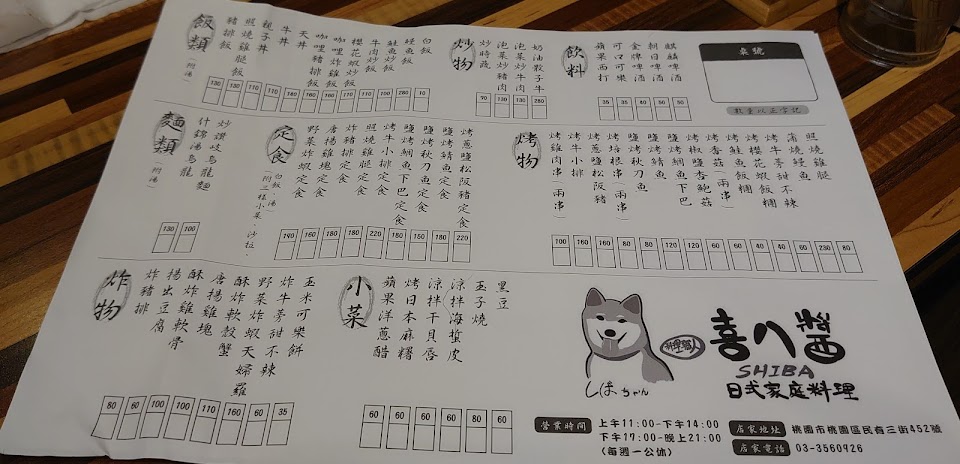 飯類
(附湯)
豬排飯
照燒雞腿飯
親子丼
牛丼
天丼
咖哩豬排飯
咖哩炸雞飯
櫻花蝦炒飯
牛肉炒飯
鮭魚炒飯
鰻魚飯
白飯
280
10
炒物
炒時蔬
泡菜炒豬肉
泡菜炒牛肉
奶油骰子牛
90
130
130
280
飲料
蘋果西打
可口可樂
金牌啤酒
朝日啤酒
麒麟啤酒
35
35
40
50
50
桌號
數量以正字記
麵類
(附湯)
什錦湯烏龍
炒讚歧烏龍麵
130
100
定食
(白飯、湯、附三樣小菜、沙拉)
野菜炸蝦定食
唐揚雞塊定食
炸豬排定食
照燒雞腿定食
烤牛小排定食
鹽烤鯛魚下巴定食
鹽烤秋刀魚定食
鹽烤鯖魚定食
烤蔥鹽松阪豬定食
190
160
180
180
220
180
180
180
220
烤物
烤雞肉串(兩串)
烤牛小排
烤蔥鹽松阪豬
烤培根串(兩串)
鹽烤秋刀魚
鹽烤鯖魚
鹽烤鯛魚下巴
椒鹽杏鮑菇
烤香菇(兩串)
烤鮭魚飯糰
烤櫻花蝦飯糰
烤牛蒡甜不辣
蒲燒鰻魚
照燒雞腿
100
160
160
80
80
100
120
60
60
40
40
60
230
80
炸物
炸豬排
揚出豆腐
酥炸雞軟骨
唐揚雞塊
酥炸軟殼蟹
野菜炸蝦天婦羅
炸牛蒡甜不辣
玉米可樂餅
80
60
100
100
110
160
60
35
小菜
蘋果洋蔥醋
烤日本麻糬
涼拌干貝唇
涼拌海蜇皮
玉子燒
黑豆
60
60
60
60
80
60
しばちゃん
料理職人
喜八醬
SHIBA
日式家庭料理
營業時間
上午11:00-下午14:00
下午17:00-晚上21:00
(每週一公休)
店家地址
桃園市桃園區民有三街452號
店家電話
03-3560926